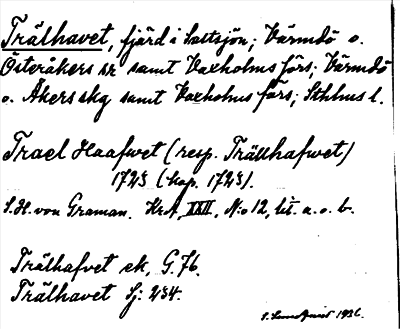 Trälhavet, fjärd i Saltsjön; Värmdö o.
Österåkers sr samt Vaxholms förs; Värmdö
o. Åkers skg samt Vaxholms förs; Sthlms l.
Trael Haafwet (resp. Trällhafwet)
1723 (kop. 1723).
S.H. von Graman. KrA, XXII, No 12, lit. a. o. b.
Trälhafvet ek, G. 76.
Trälhavet Sj: 234.
1936.